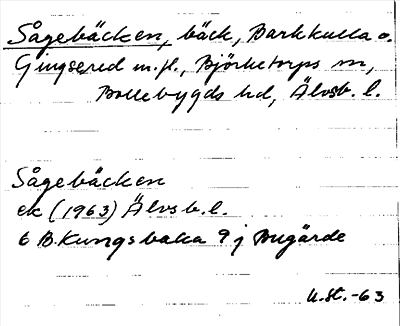 Sågebäcken, bäck, Barkkulla o.
Gingsered m.fl., Björketorps sn,
Bollebygds hd, Älvsb. l.
Sågebäcken
ek (1963) Älvsb. l.
6 B Kungsbacka 9 j Bugärde
U.St.-63